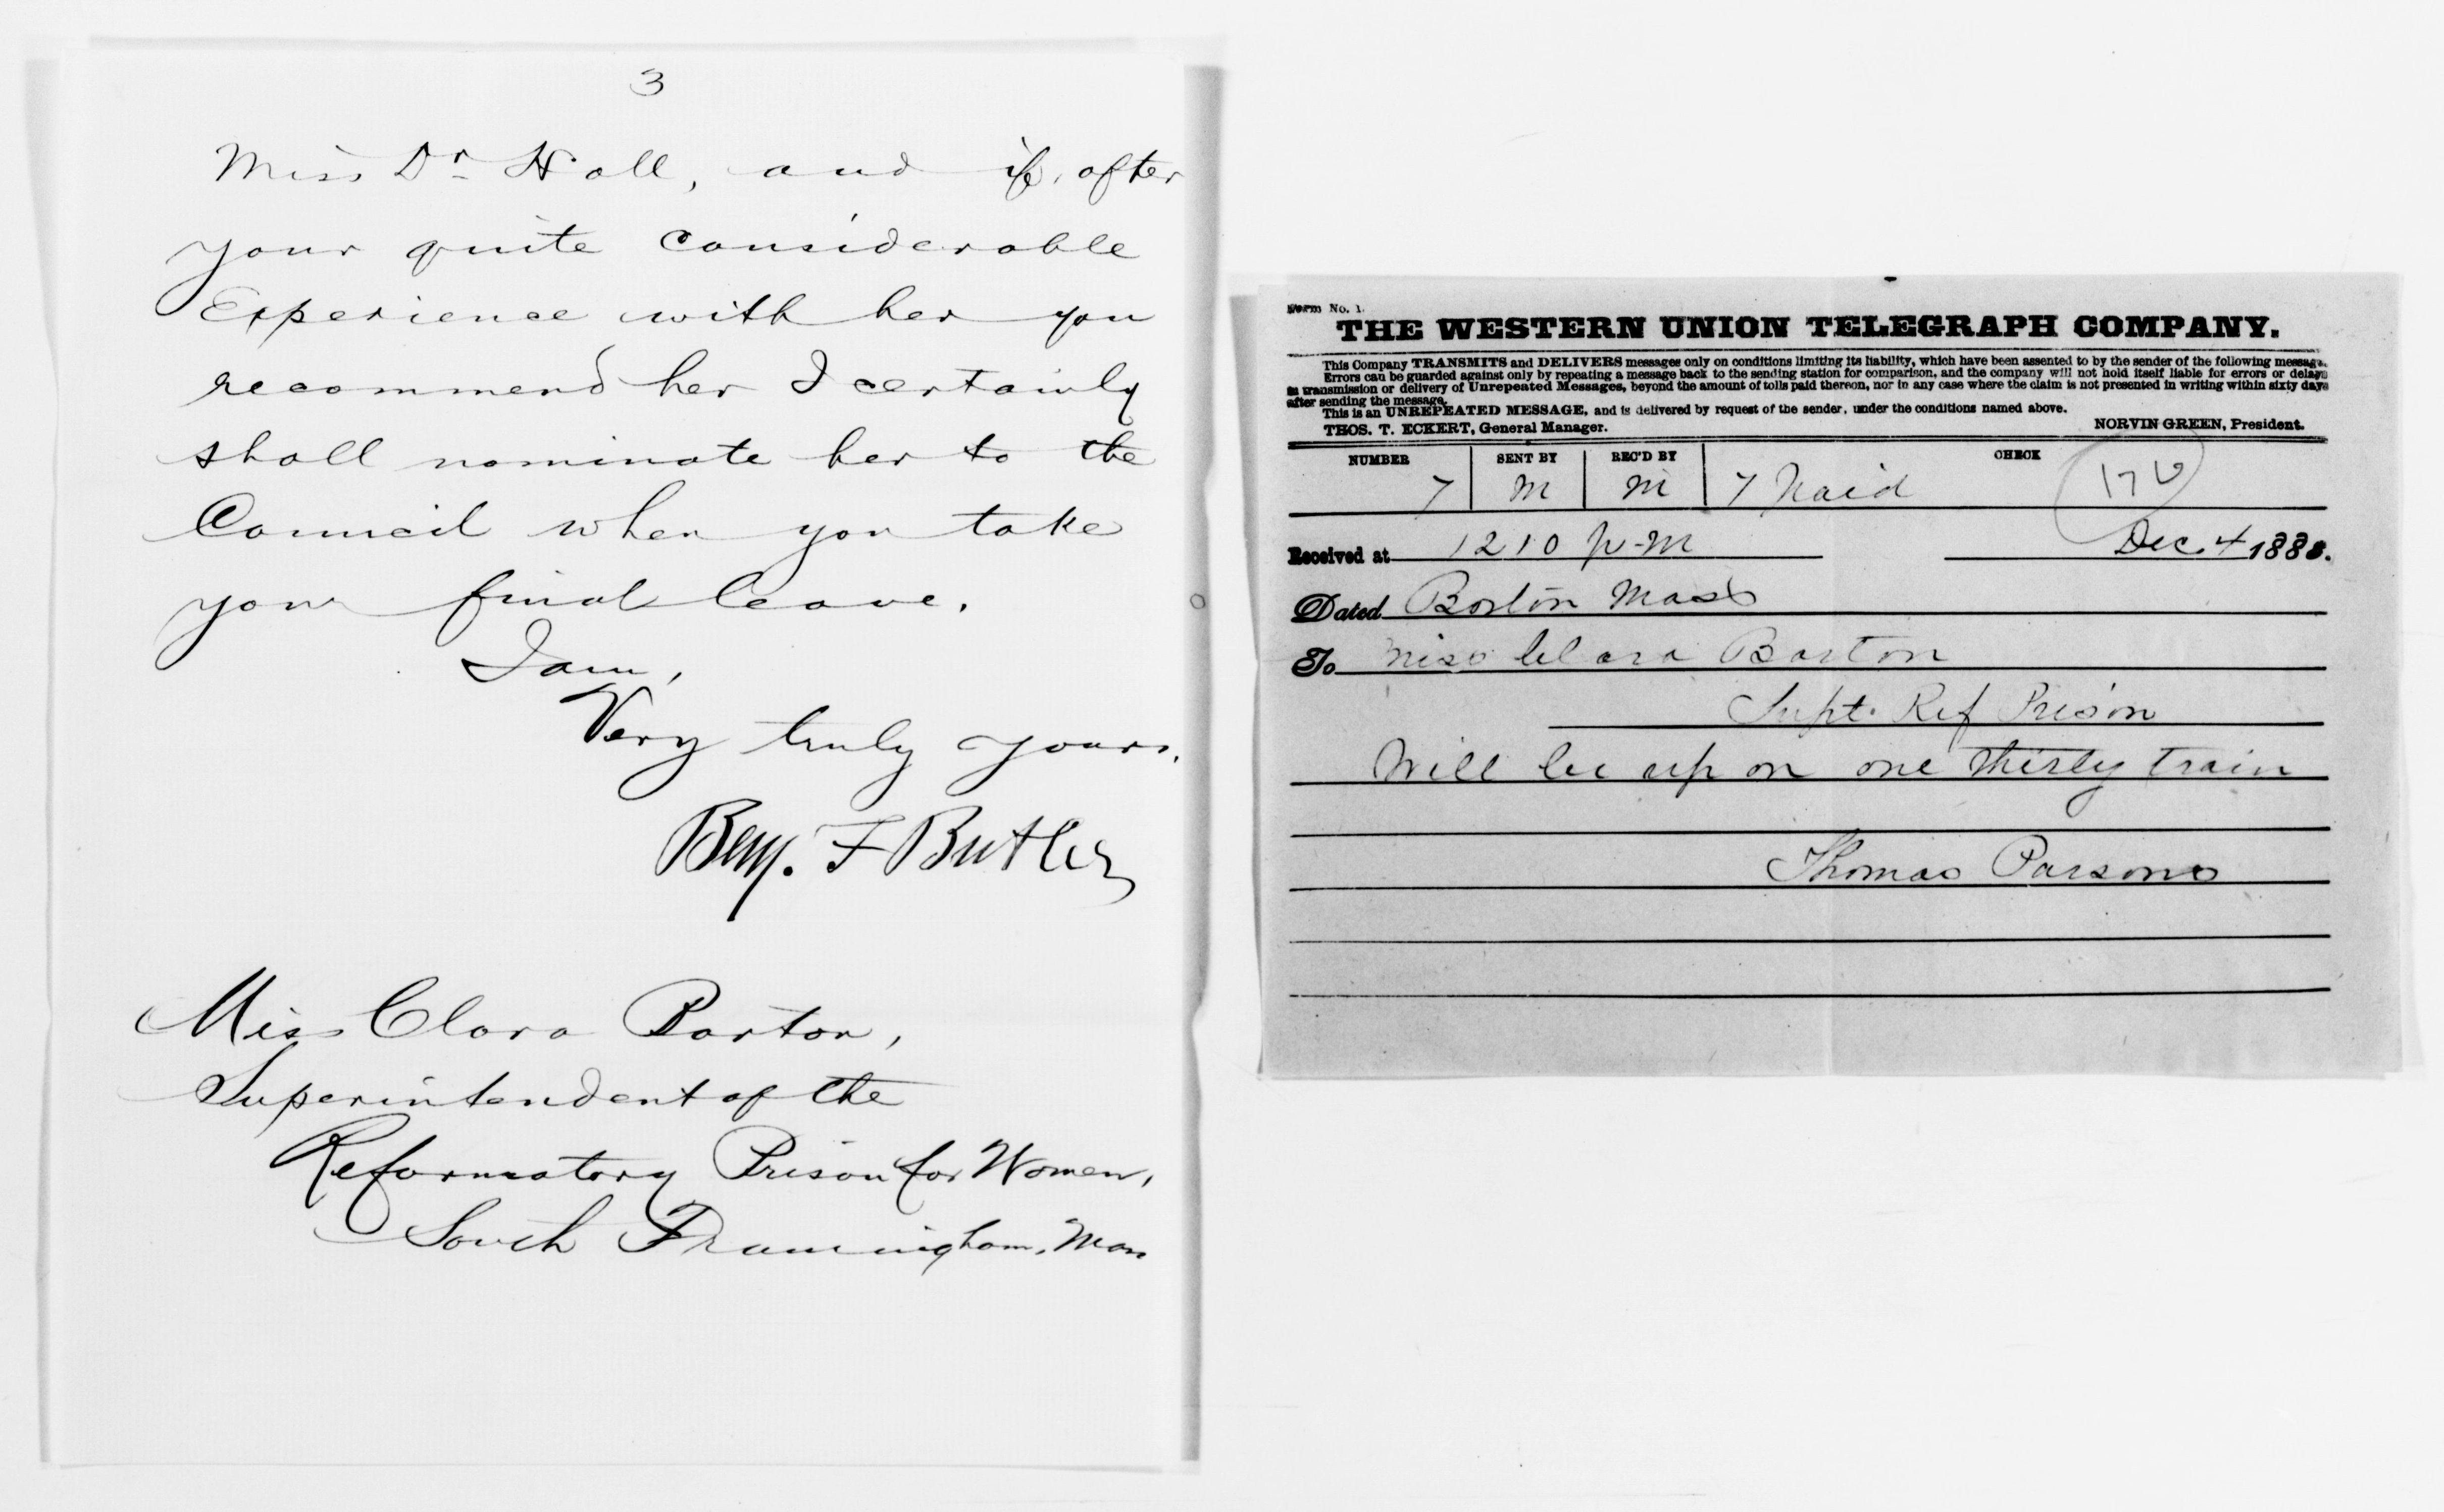 3
Miss Dr Hall, and if, after
your quite considerable
Experience with her you
recommend her I certainly
shall nominate her to the
Council when you take
your final leave.
I am,
Very truly yours,
Benj. F Butler
Miss Clara Barton,
Superintendent of the
Reformatory Prison for Women,
South Framingham, Mass
Form No. 1.
THE WESTERN UNION TELEGRAPH COMPANY.
This Company TRANSMITS and DELIVERS messages only on conditions limiting its liability, which have been assented to by the sender of the following message.
Errors can be guarded against only by repeating a message back to the sending station for comparison, and the company will not hold itself liable for errors or delays
in transmission or delivery of Unrepeated Messages, beyond the amount of tolls paid thereon, nor in any case where the claim is not presented in writing within sixty days
after sending the message.
This is an UNREPEATED MESSAGE, and is delivered by request of the sender, under the conditions named above.
THOS. T. ECKERT, General Manager. NORVIN GREEN, President.
NUMBER SENT BY REC'D BY CHECK
7 M M 7 Paid
Received at 1210 p-m Dec. 4 188
Dated Boston Mass
To Miss Clara Barton
Supt. Ref Prison
Will be up on one thirty train
Thomas Parsons